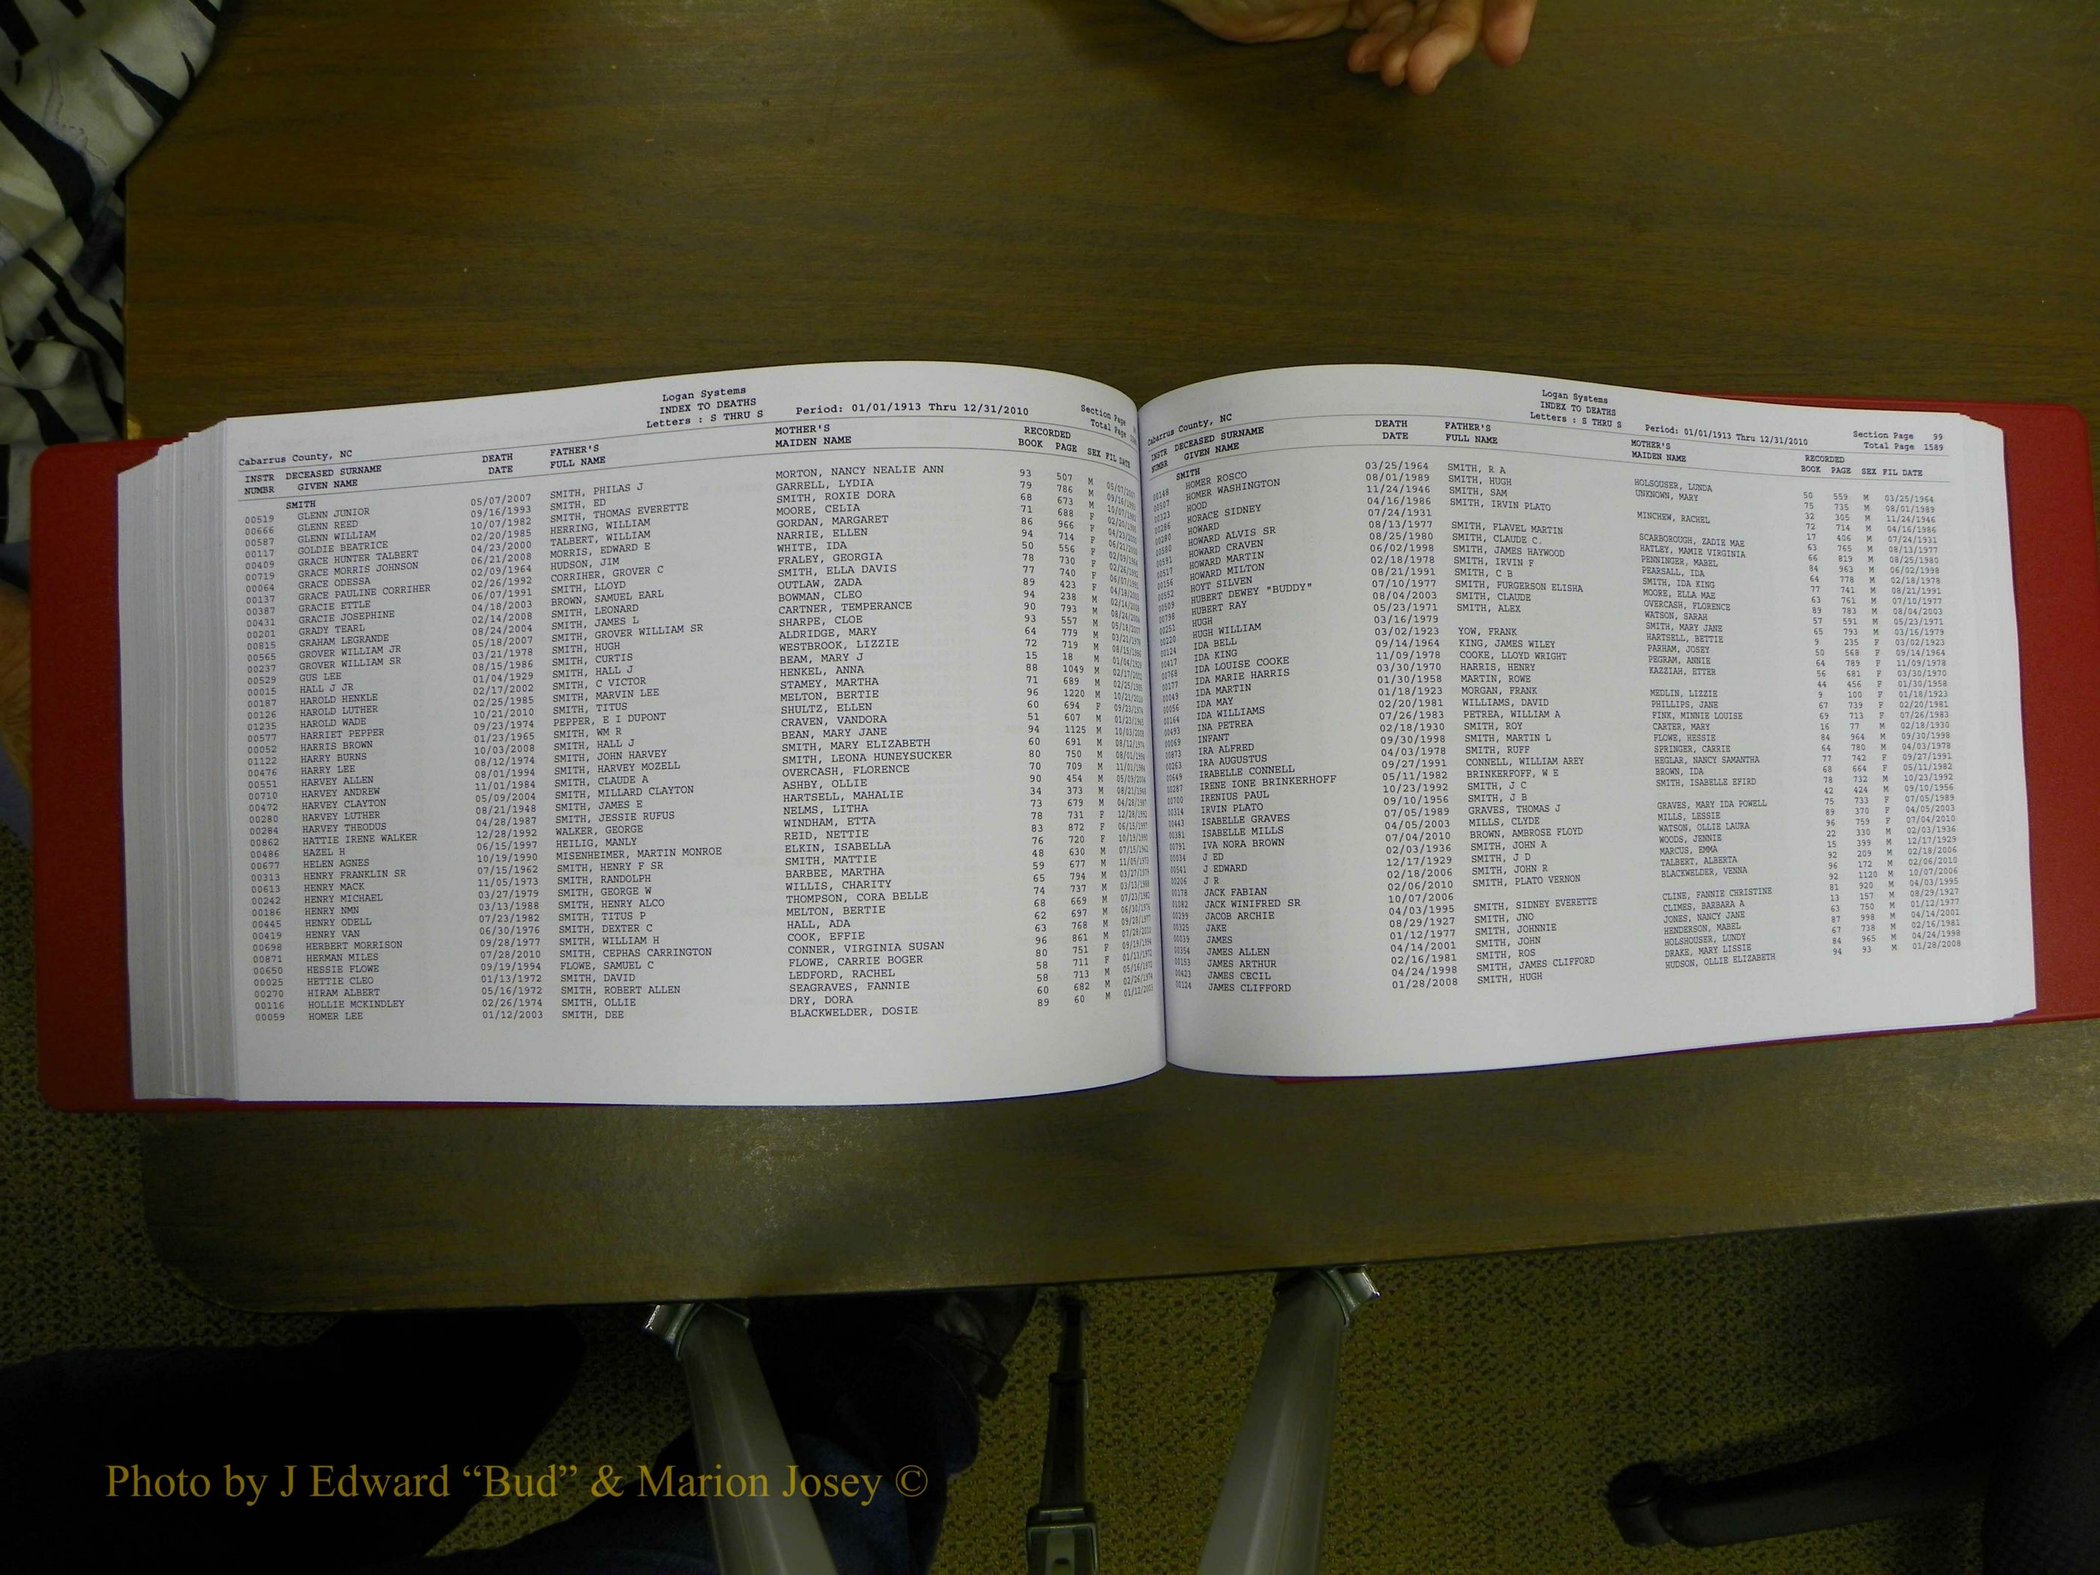 Logan Systems
INDEX TO DEATHS
Letters : S THRU S
Period: 01/01/1913 Thru 12/31/2010
Section Page
Total Page
Cabarrus County, NC
INSTR DECEASED SURNAME DEATH FATHER'S MOTHER'S RECORDED
NUMBR GIVEN NAME DATE FULL NAME MAIDEN NAME BOOK PAGE SEX FIL DATE
SMITH
00519 GLENN JUNIOR 05/07/2007 SMITH, PHILAS J MORTON, NANCY NEALIE ANN 93 507 M 05/07/2007
00666 GLENN REED 09/16/1993 SMITH, ED GARRELL, LYDIA 79 786 M 09/16/1993
00587 GLENN WILLIAM 10/07/1982 SMITH, THOMAS EVERETTE SMITH, ROXIE DORA 68 673 M 10/07/1982
00117 GOLDIE BEATRICE 02/20/1985 HERRING, WILLIAM MOORE, CELIA 71 688 F 02/20/1985
00409 GRACE HUNTER TALBERT 04/23/2000 TALBERT, WILLIAM GORDAN, MARGARET 86 966 F 04/23/2000
00719 GRACE MORRIS JOHNSON 06/21/2008 MORRIS, EDWARD E NARRIE, ELLEN 94 714 F 06/21/2008
00064 GRACE ODESSA 02/09/1964 HUDSON, JIM WHITE, IDA 50 556 F 02/09/1964
00137 GRACE PAULINE CORRIHER 02/26/1992 CORRIHER, GROVER C FRALEY, GEORGIA 78 730 F 02/26/1992
00387 GRACIE ETTLE 06/07/1991 SMITH, LLOYD SMITH, ELLA DAVIS 77 740 F 06/07/1991
00431 GRACIE JOSEPHINE 04/18/2003 BROWN, SAMUEL EARL OUTLAW, ZADA 89 423 F 04/18/2003
00201 GRADY TEARL 02/14/2008 SMITH, LEONARD BOWMAN, CLEO 94 238 M 02/14/2008
00815 GRAHAM LEGRANDE 08/24/2004 SMITH, JAMES L CARTNER, TEMPERANCE 90 793 M 08/24/2004
00565 GROVER WILLIAM JR 05/18/2007 SMITH, GROVER WILLIAM SR SHARPE, CLOE 93 557 M 05/18/2007
00237 GROVER WILLIAM SR 03/21/1978 SMITH, HUGH ALDRIDGE, MARY 64 779 M 03/21/1978
00529 GUS LEE 08/15/1986 SMITH, CURTIS WESTBROOK, LIZZIE 72 719 M 08/15/1986
00015 HALL J JR 01/04/1929 SMITH, HALL J BEAM, MARY J 15 18 M 01/04/1929
00187 HAROLD HENKLE 02/17/2002 SMITH, C VICTOR HENKEL, ANNA 88 1049 M 02/17/2002
00126 HAROLD LUTHER 02/25/1985 SMITH, MARVIN LEE STAMEY, MARTHA 71 689 M 02/25/1985
01235 HAROLD WADE 10/21/2010 SMITH, TITUS MELTON, BERTIE 96 1220 M 10/21/2010
00577 HARRIET PEPPER 09/23/1974 PEPPER, E I DUPONT SHULTZ, ELLEN 60 694 F 09/23/1974
00052 HARRIS BROWN 01/23/1965 SMITH, WM R CRAVEN, VANDORA 51 607 M 01/23/1965
01122 HARRY BURNS 10/03/2008 SMITH, HALL J BEAN, MARY JANE 94 1125 M 10/03/2008
00476 HARRY LEE 08/12/1974 SMITH, JOHN HARVEY SMITH, MARY ELIZABETH 60 691 M 08/12/1974
00551 HARVEY ALLEN 08/01/1994 SMITH, HARVEY MOZELL SMITH, LEONA HUNEYSUCKER 80 750 M 08/01/1994
00710 HARVEY ANDREW 11/01/1984 SMITH, CLAUDE A OVERCASH, FLORENCE 70 709 M 11/01/1984
00472 HARVEY CLAYTON 05/09/2004 SMITH, MILLARD CLAYTON ASHBY, OLLIE 90 454 M 05/09/2004
00280 HARVEY LUTHER 08/21/1948 SMITH, JAMES E HARTSELL, MAHALIE 34 373 M 08/21/1948
00284 HARVEY THEODUS 04/28/1987 SMITH, JESSIE RUFUS NELMS, LITHA 73 679 M 04/28/1987
00862 HATTIE IRENE WALKER 12/28/1992 WALKER, GEORGE WINDHAM, ETTA 78 731 F 12/28/1992
00486 HAZEL H 06/15/1997 HEILIG, MANLY REID, NETTIE 83 872 F 06/15/1997
00677 HELEN AGNES 10/19/1990 MISENHEIMER, MARTIN MONROE ELKIN, ISABELLA 76 720 F 10/19/1990
00313 HENRY FRANKLIN SR 07/15/1962 SMITH, HENRY F SR SMITH, MATTIE 48 630 M 07/15/1962
00613 HENRY MACK 11/05/1973 SMITH, RANDOLPH BARBEE, MARTHA 59 677 M 11/05/1973
00242 HENRY MICHAEL 03/27/1979 SMITH, GEORGE W WILLIS, CHARITY 65 794 M 03/27/1979
00186 HENRY NMN 03/13/1988 SMITH, HENRY ALCO THOMPSON, CORA BELLE 74 737 M 03/13/1988
00445 HENRY ODELL 07/23/1982 SMITH, TITUS P MELTON, BERTIE 68 669 M 07/23/1982
00419 HENRY VAN 06/30/1976 SMITH, DEXTER C HALL, ADA 62 697 M 06/30/1976
00698 HERBERT MORRISON 09/28/1977 SMITH, WILLIAM H COOK, EFFIE 63 768 M 09/28/1977
00871 HERMAN MILES 07/28/2010 SMITH, CEPHAS CARRINGTON CONNER, VIRGINIA SUSAN 96 861 M 07/28/2010
00650 HESSIE FLOWE 09/19/1994 FLOWE, SAMUEL C FLOWE, CARRIE BOGER 80 751 F 09/19/1994
00025 HETTIE CLEO 01/13/1972 SMITH, DAVID LEDFORD, RACHEL 58 711 F 01/13/1972
00270 HIRAM ALBERT 05/16/1972 SMITH, ROBERT ALLEN SEAGRAVES, FANNIE 58 713 M 05/16/1972
00116 HOLLIE MCKINDLEY 02/26/1974 SMITH, OLLIE DRY, DORA 60 682 M 02/26/1974
00059 HOMER LEE 01/12/2003 SMITH, DEE BLACKWELDER, DOSIE 89 60 M 01/12/2003
Logan Systems
INDEX TO DEATHS
Letters : S THRU S
Period: 01/01/1913 Thru 12/31/2010
Section Page 99
Total Page 1589
Cabarrus County, NC
INSTR DECEASED SURNAME DEATH FATHER'S MOTHER'S RECORDED
NUMBR GIVEN NAME DATE FULL NAME MAIDEN NAME BOOK PAGE SEX FIL DATE
SMITH
00148 HOMER ROSCO 03/25/1964 SMITH, R A HOLSOUSER, LUNDA 50 559 M 03/25/1964
00507 HOMER WASHINGTON 08/01/1989 SMITH, HUGH UNKNOWN, MARY 75 735 M 08/01/1989
00323 HOOD 11/24/1946 SMITH, SAM 32 305 M 11/24/1946
00286 HORACE SIDNEY 04/16/1986 SMITH, IRVIN PLATO MINCHEW, RACHEL 72 714 M 04/16/1986
00280 HOWARD 07/24/1931 17 406 M 07/24/1931
00580 HOWARD ALVIS SR 08/13/1977 SMITH, FLAVEL MARTIN SCARBOROUGH, ZADIE MAE 63 765 M 08/13/1977
00591 HOWARD CRAVEN 08/25/1980 SMITH, CLAUDE C. HATLEY, MAMIE VIRGINIA 66 819 M 08/25/1980
00517 HOWARD MARTIN 06/02/1998 SMITH, JAMES HAYWOOD PENNINGER, MABEL 84 963 M 06/02/1998
00156 HOWARD MILTON 02/18/1978 SMITH, IRVIN F PEARSALL, IDA 64 778 M 02/18/1978
00552 HOYT SILVEN 08/21/1991 SMITH, C B SMITH, IDA KING 77 741 M 08/21/1991
00509 HUBERT DEWEY "BUDDY" 07/10/1977 SMITH, FURGERSON ELISHA MOORE, ELLA MAE 63 761 M 07/10/1977
00798 HUBERT RAY 08/04/2003 SMITH, CLAUDE OVERCASH, FLORENCE 89 783 M 08/04/2003
00251 HUGH 05/23/1971 SMITH, ALEX WATSON, SARAH 57 591 M 05/23/1971
00220 HUGH WILLIAM 03/16/1979 SMITH, MARY JANE 65 793 M 03/16/1979
00124 IDA BELL 03/02/1923 YOW, FRANK HARTSELL, BETTIE 9 235 F 03/02/1923
00417 IDA KING 09/14/1964 KING, JAMES WILEY PARHAM, JOSEY 50 568 F 09/14/1964
00768 IDA LOUISE COOKE 11/09/1978 COOKE, LLOYD WRIGHT PEGRAM, ANNIE 64 789 F 11/09/1978
00177 IDA MARIE HARRIS 03/30/1970 HARRIS, HENRY KAZZIAH, ETTER 56 681 F 03/30/1970
00049 IDA MARTIN 01/30/1958 MARTIN, ROWE 44 456 F 01/30/1958
00056 IDA MAY 01/18/1923 MORGAN, FRANK MEDLIN, LIZZIE 9 100 F 01/18/1923
00164 IDA WILLIAMS 02/20/1981 WILLIAMS, DAVID PHILLIPS, JANE 67 739 F 02/20/1981
00493 INA PETREA 07/26/1983 PETREA, WILLIAM A FINK, MINNIE LOUISE 69 713 F 07/26/1983
00069 INFANT 02/18/1930 SMITH, ROY CARTER, MARY 16 77 M 02/18/1930
00873 IRA ALFRED 09/30/1998 SMITH, MARTIN L FLOWE, HESSIE 84 964 M 09/30/1998
00263 IRA AUGUSTUS 04/03/1978 SMITH, RUFF SPRINGER, CARRIE 64 780 M 04/03/1978
00649 IRABELLE CONNELL 09/27/1991 CONNELL, WILLIAM AREY HEGLAR, NANCY SAMANTHA 77 742 F 09/27/1991
00287 IRENE IONE BRINKERHOFF 05/11/1982 BRINKERFOFF, W E BROWN, IDA 68 664 F 05/11/1982
00700 IRENIUS PAUL 10/23/1992 SMITH, J C SMITH, ISABELLE EFIRD 78 732 M 10/23/1992
00314 IRVIN PLATO 09/10/1956 SMITH, J B 42 424 M 09/10/1956
00443 ISABELLE GRAVES 07/05/1989 GRAVES, THOMAS J GRAVES, MARY IDA POWELL 75 733 F 07/05/1989
00381 ISABELLE MILLS 04/05/2003 MILLS, CLYDE MILLS, LESSIE 89 370 F 04/05/2003
00791 IVA NORA BROWN 07/04/2010 BROWN, AMBROSE FLOYD WATSON, OLLIE LAURA 96 759 F 07/04/2010
00034 J ED 02/03/1936 SMITH, JOHN A WOODS, JENNIE 22 330 M 02/03/1936
00541 J EDWARD 12/17/1929 SMITH, J D MARCUS, EMMA 15 399 M 12/17/1929
00206 J R 02/18/2006 SMITH, JOHN R TALBERT, ALBERTA 92 209 M 02/18/2006
00178 JACK FABIAN 02/06/2010 SMITH, PLATO VERNON BLACKWELDER, VENNA 96 172 M 02/06/2010
01082 JACK WINIFRED SR 10/07/2006 92 1120 M 10/07/2006
00299 JACOB ARCHIE 04/03/1995 SMITH, SIDNEY EVERETTE CLINE, FANNIE CHRISTINE 81 920 M 04/03/1995
00325 JAKE 08/29/1927 SMITH, JNO CLIMES, BARBARA A 13 157 M 08/29/1927
00039 JAMES 01/12/1977 SMITH, JOHNNIE JONES, NANCY JANE 63 750 M 01/12/1977
00354 JAMES ALLEN 04/14/2001 SMITH, JOHN HENDERSON, MABEL 87 998 M 04/14/2001
00153 JAMES ARTHUR 02/16/1981 SMITH, ROS HOLSHOUSER, LUNDY 67 738 M 02/16/1981
00423 JAMES CECIL 04/24/1998 SMITH, JAMES CLIFFORD DRAKE, MARY LISSIE 84 965 M 04/24/1998
00124 JAMES CLIFFORD 01/28/2008 SMITH, HUGH HUDSON, OLLIE ELIZABETH 94 93 M 01/28/2008
Photo by J Edward “Bud” & Marion Josey ©